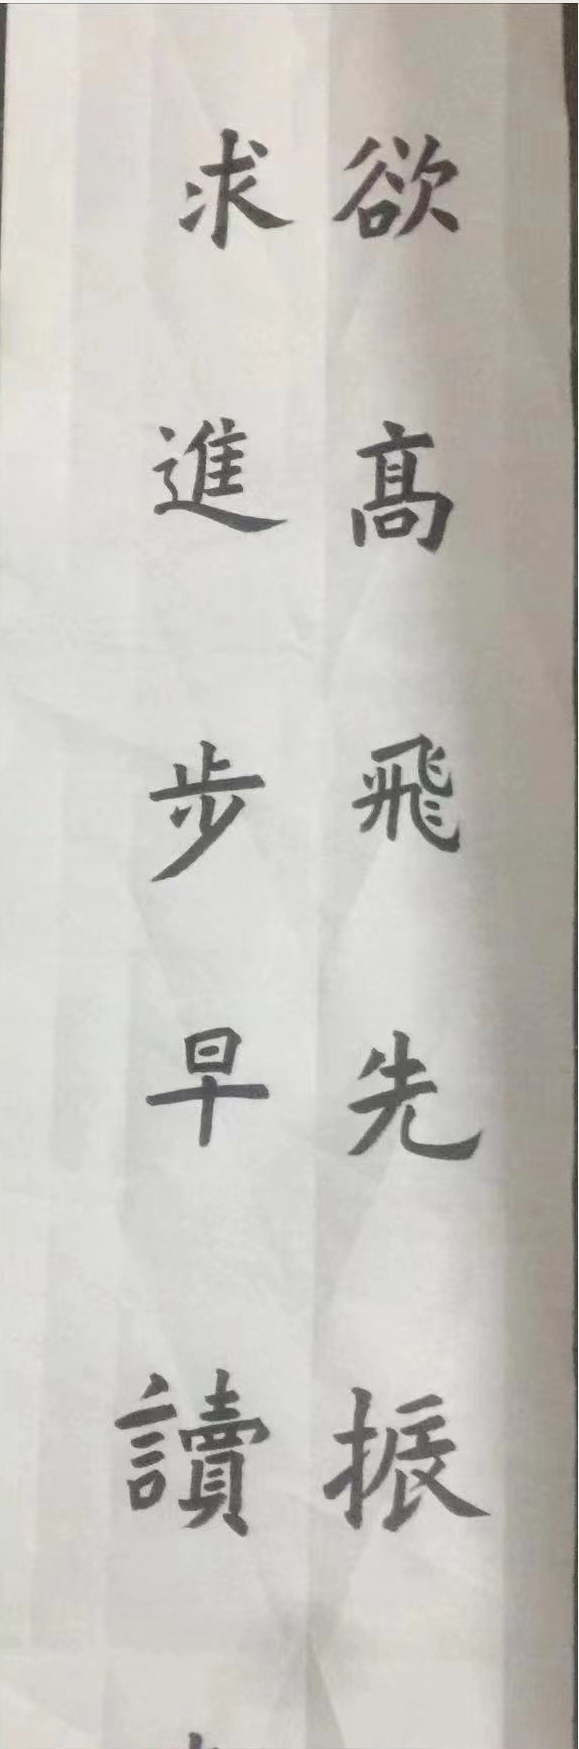 欲髙飛先振
求進步早讀